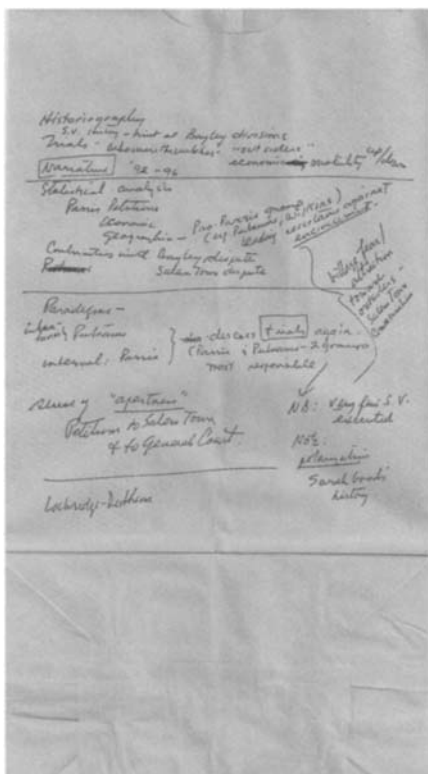 Historiography
S.V. history - hint at Bayley divisions
Trials - between "outsiders"
economic mobility up/down
Narrative '92-96
Statistical analysis
Parris Petitions
Economic
Geographic - Pro-Parris group
(esp. Putnams,
leading reactions against
Continuities with Bayley dispute
Salem Town dispute
village fear/
attraction
toward
outsiders -
Salem Town
Paradigms -
family: Putnams
internal: Parris
discuss trials again
(Parris & Putnams - 2 groups
most responsible
Sense of "apartness"
Petitions to Salem Town
& to General Court.
NB: Very few S.V.
executed
Note:
Sarah Good's
history
Lockridge-Dedham